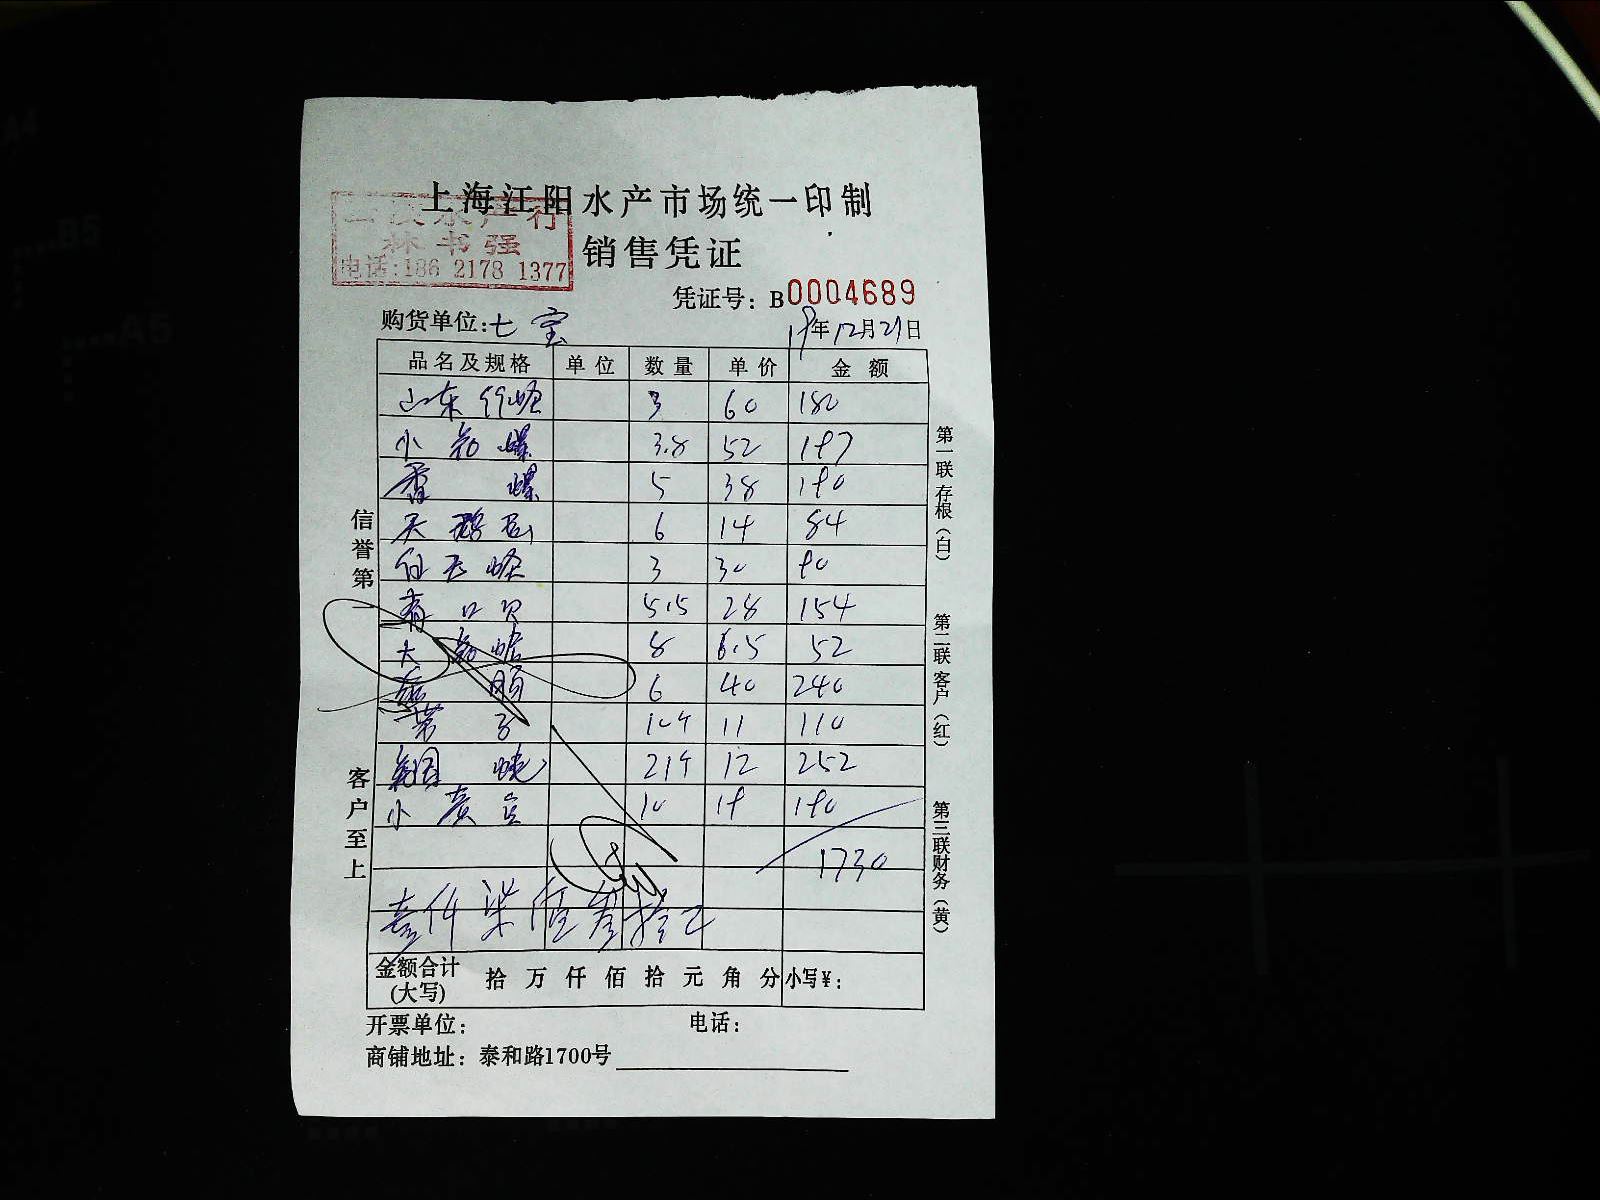 上海江阳水产市场统一印制
水产行
林书强
电话:186 2178 1377
销售凭证
凭证号: B0004689
购货单位: 七宝
19年12月21日
品名及规格 单位 数量 单价 金额
山东 3 60 180
小 螺 3.8 52 197
香螺 5 38 190
天鹅 6 14 84
3 30 90
有口贝 5.5 28 154
大 蛤 8 6.5 52
6 40 240
带子 10个 11 110
21个 12 252
小 10 19 190
1730
壹仟柒佰叁拾元
金额合计(大写) 拾 万 仟 佰 拾 元 角 分 小写¥:
开票单位: 电话:
商铺地址: 泰和路1700号
信誉第一
客户至上
第一联 存根(白)
第二联 客户(红)
第三联 财务(黄)
A4
B5
A5